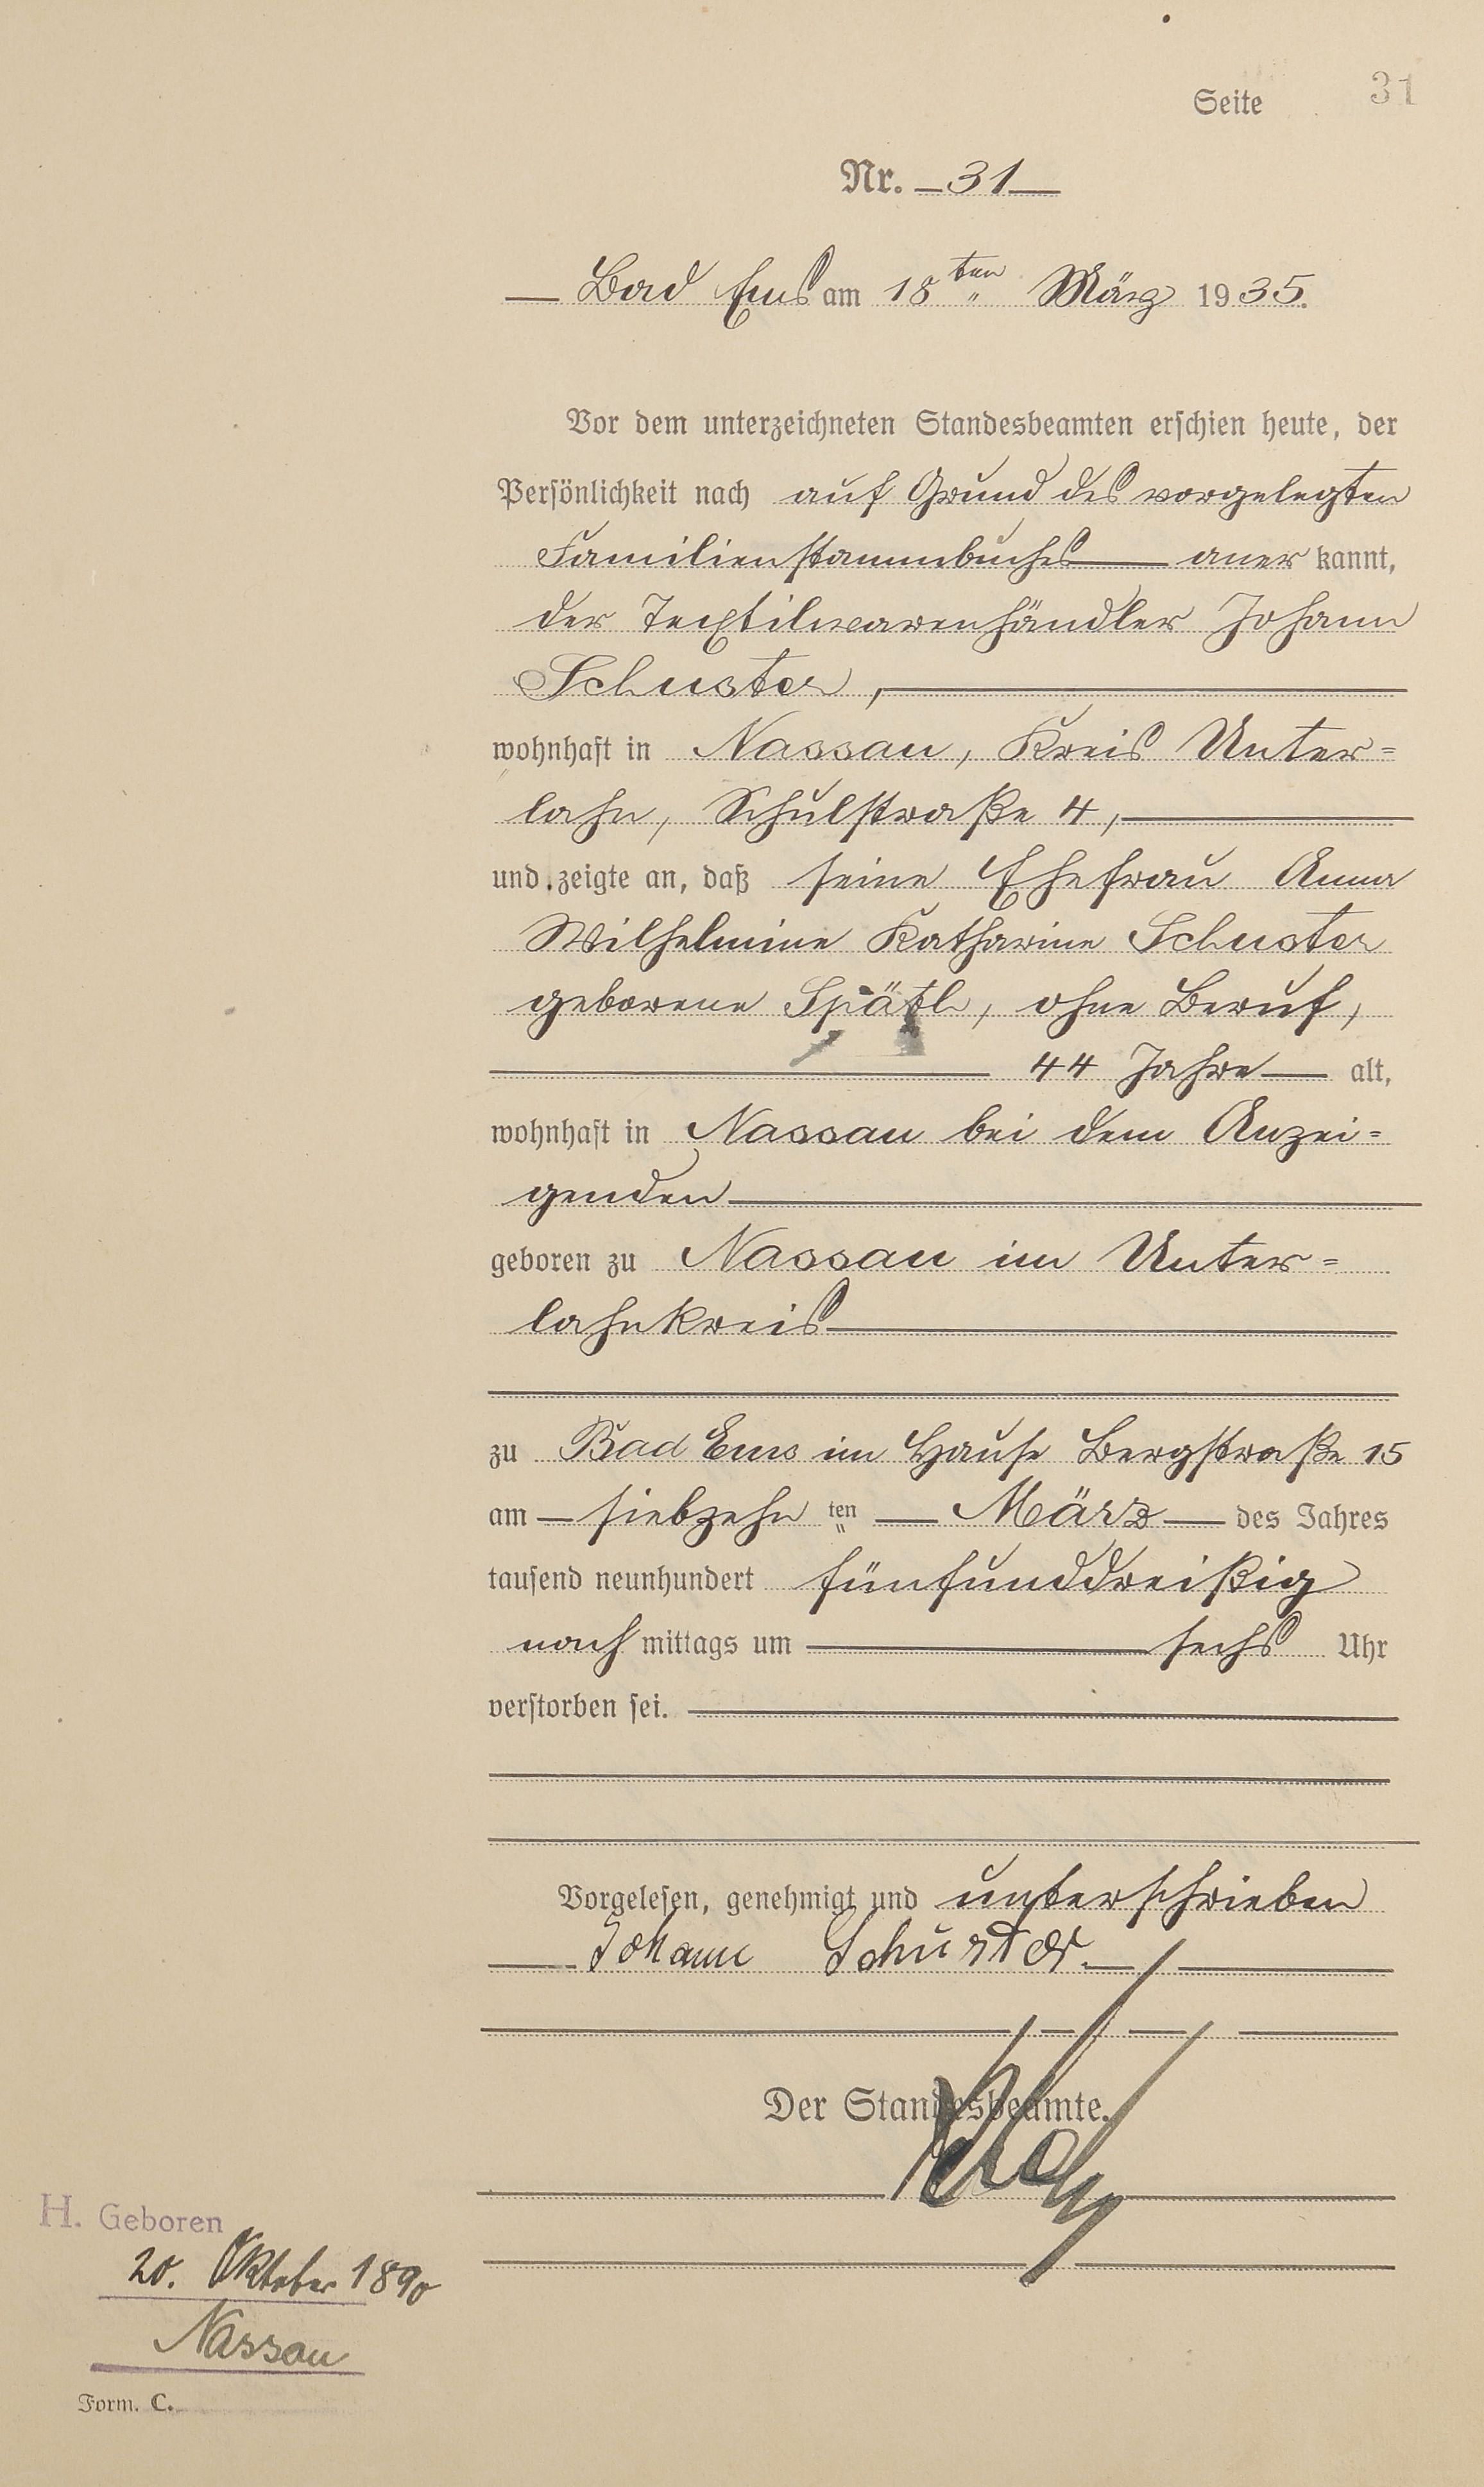 Seite 31
Nr. 31
Bad Ems am 18ten März 1935.
Vor dem unterzeichneten Standesbeamten erschien heute, der
Persönlichkeit nach auf Grund des vorgelegten
Familienstammbuches anerkannt,
der Textilwarenhändler Johann
Schuster,
wohnhaft in Nassau, Kreis Unter=
lahn, Schulstraße 4,
und zeigte an, daß seine Ehefrau Anna
Wilhelmine Katharine Schuster
geborene Späth, ohne Beruf,
44 Jahre alt,
wohnhaft in Nassau bei dem Anzei=
genden
geboren zu Nassau im Unter=
lahnkreis
zu Bad Ems im Hause Bergstraße 15
am siebzehnten März des Jahres
tausend neunhundert fünfunddreißig
nachmittags um sechs Uhr
verstorben sei.
Vorgelesen, genehmigt und unterschrieben
Johann Schuster
Der Standesbeamte.
H. Geboren
20. Oktober 1890
Nassau
Form. C.